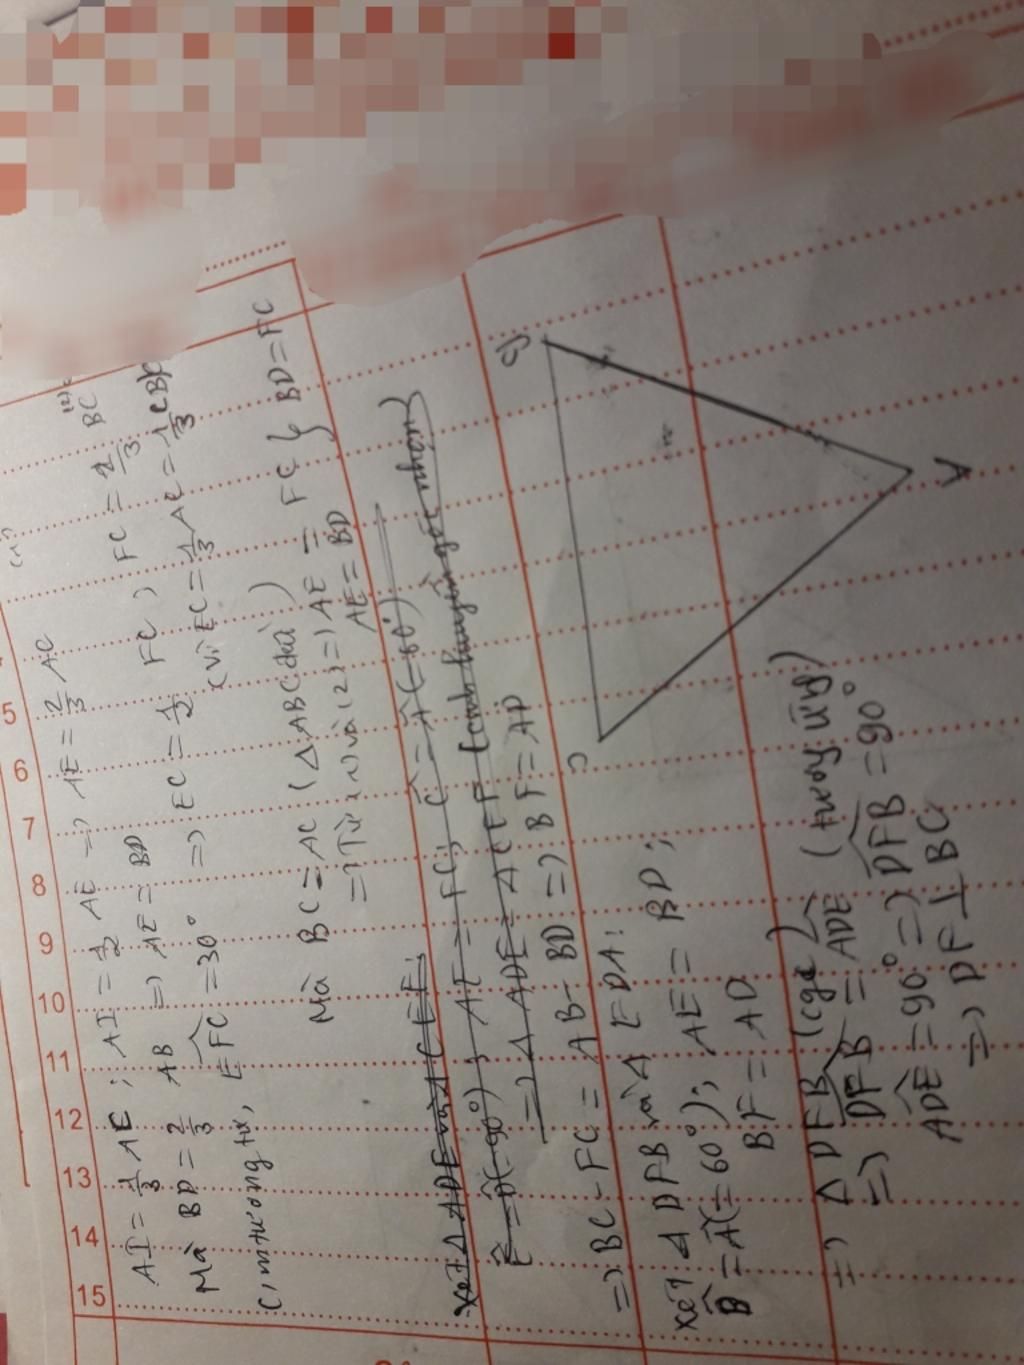 5
6
7
8
9
10
11
12
13
14
15
AI = 1/3 AE ; AI = 1/2 AE => AE = 2/3 AC
Mà BD = 2/3 AB => AE = BD
C/m tương tự, EFC = 30° => EC = 1/2 FC) FC = 2/3 BC
(Vì EC = 1/3 AC = 1/3 CB)
Mà BC = AC (△ABC đều)
=> Từ (1) và (2) => AE = FC } BD = FC
AE = BD
Xét △ADE và △CEF:
Ê = D̂ (= 90°); AE = FC; Ĉ = Â (= 60°)
=> △ADE = △CEF (cạnh huyền góc nhọn)
=> BC - FC = AB - BD => BF = AD
Xét △DFB và △EDA:
B̂ = Â (= 60°); AE = BD;
BF = AD
=> △DFB (cgc)
=> DFB = ADE (tương ứng)
ADE = 90° => DFB = 90°
=> DF ⊥ BC
C
A